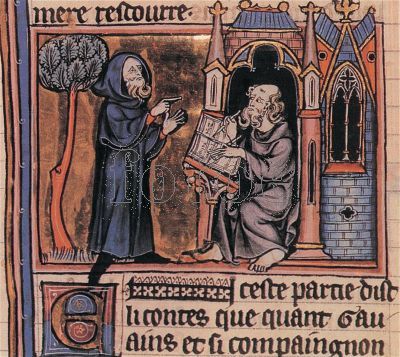 mere rescourre·
Ceste partie dist
li contes que quant Gau
ains et si compaingnon